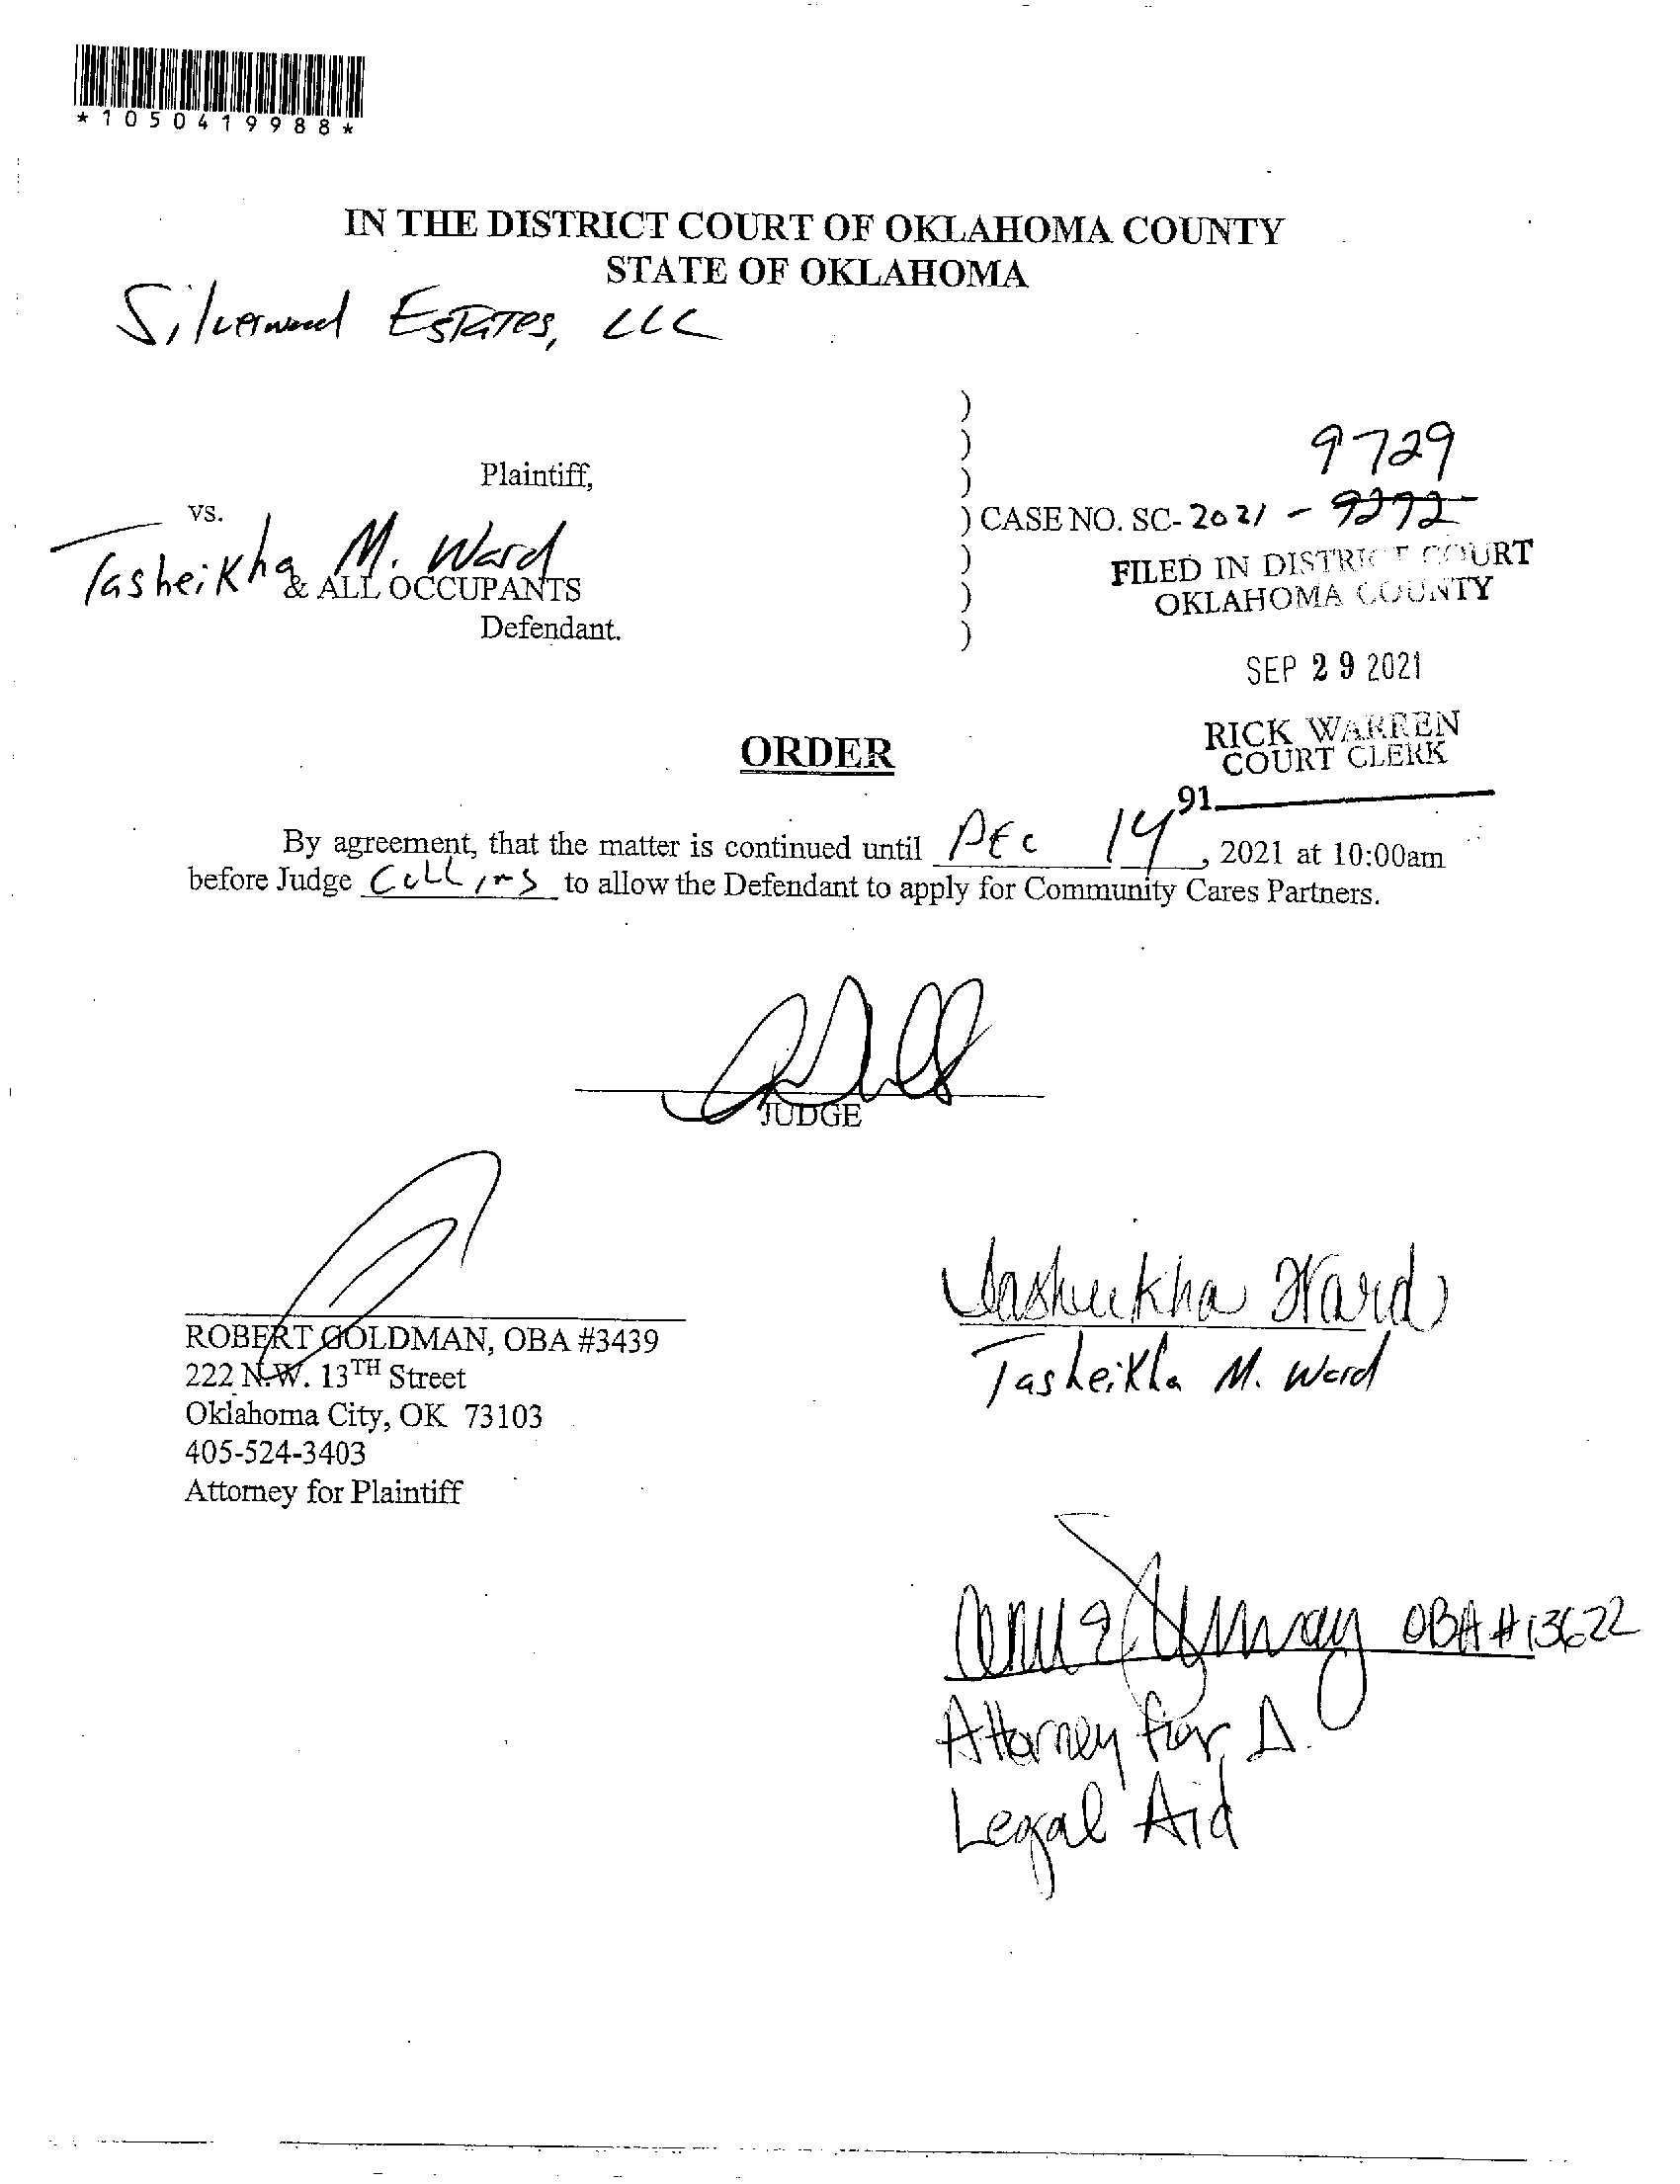 *1050419988*
IN THE DISTRICT COURT OF OKLAHOMA COUNTY
STATE OF OKLAHOMA
Silverwood Estates, LLC
)
)
Plaintiff, )
vs. ) CASE NO. SC-2021 - 9272
9729
Tasheikha M. Ward )
& ALL OCCUPANTS )
Defendant. )
FILED IN DISTRICT COURT
OKLAHOMA COUNTY
SEP 29 2021
RICK WARREN
COURT CLERK
91
ORDER
By agreement, that the matter is continued until DEC 14, 2021 at 10:00am
before Judge Collins to allow the Defendant to apply for Community Cares Partners.
JUDGE
ROBERT GOLDMAN, OBA #3439
222 N.W. 13TH Street
Oklahoma City, OK 73103
405-524-3403
Attorney for Plaintiff
Tasheikha Ward
Tasheikha M. Ward
OBA #13622
Attorney for Δ.
Legal Aid